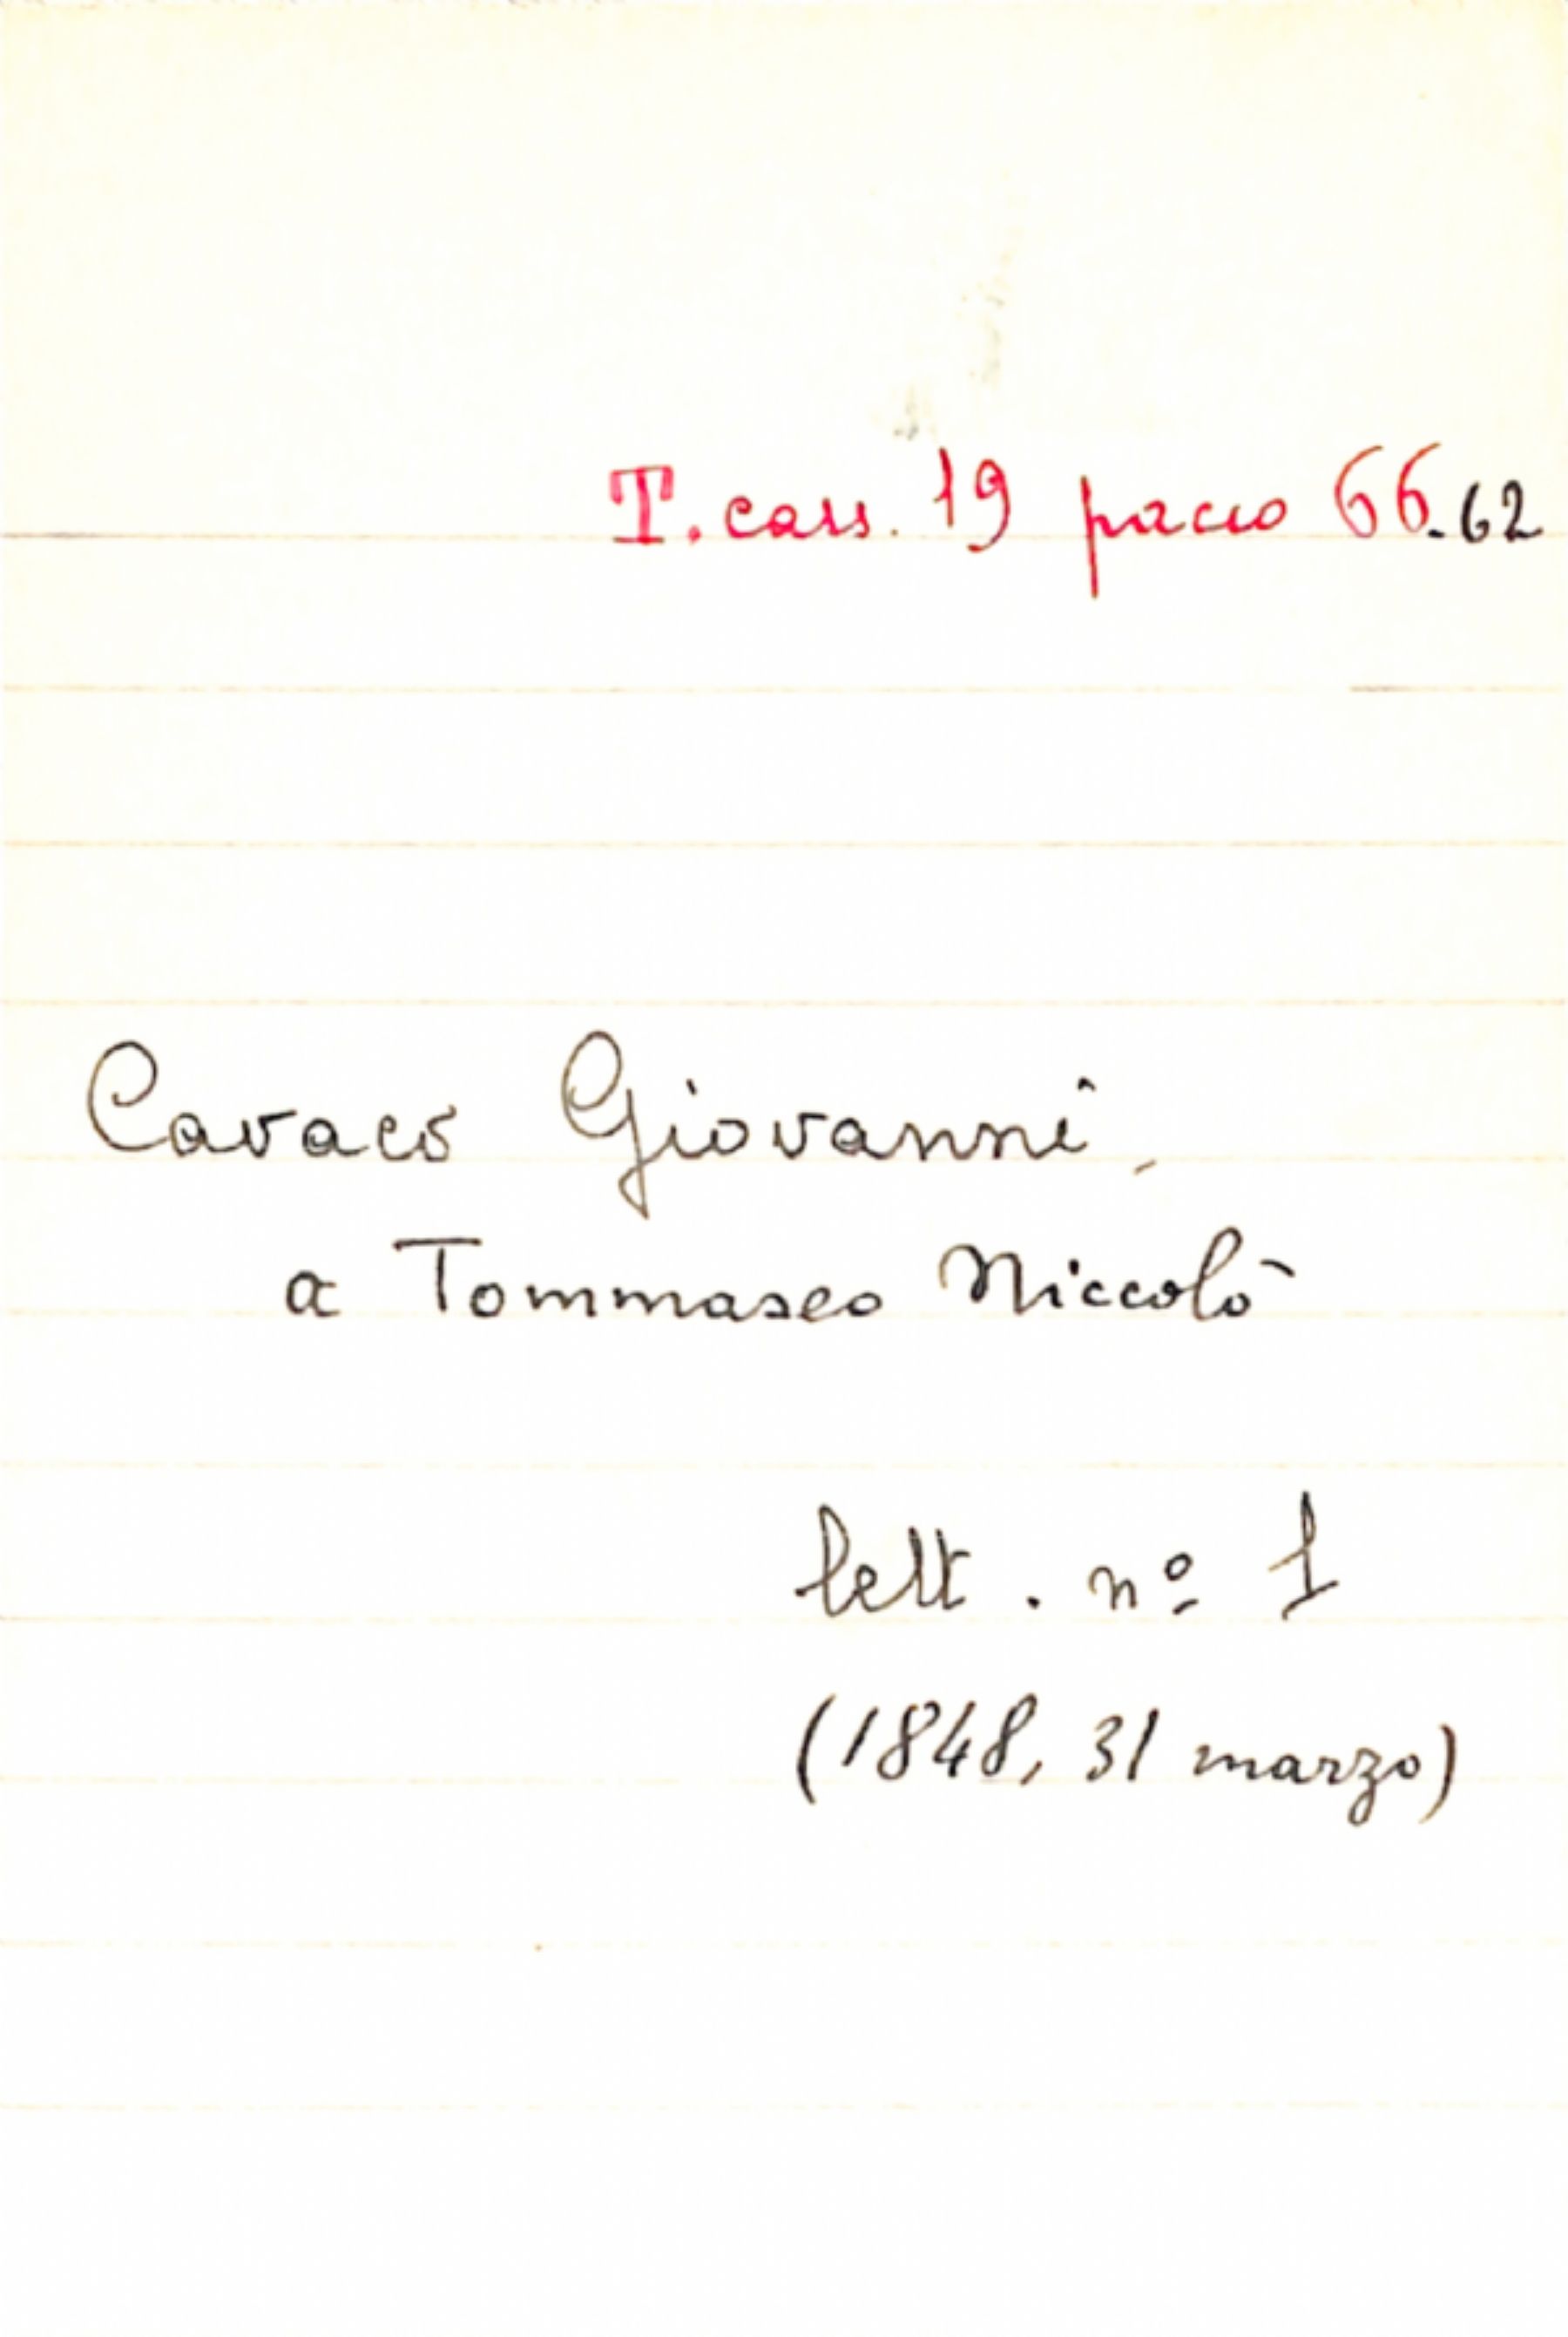 T. cass. 19 pacco 66.62
Cavaco Giovanni,
a Tommaseo Niccolò
lett. nº 1
(1848, 31 marzo)